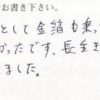 お書き下さい。
として金箔も乗っ
かったです。長生き
ました。